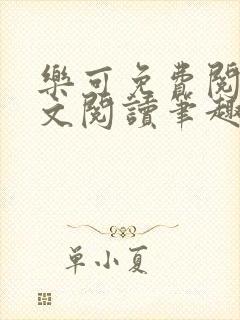 樂可免費閱
文閱讀筆趣
单小夏